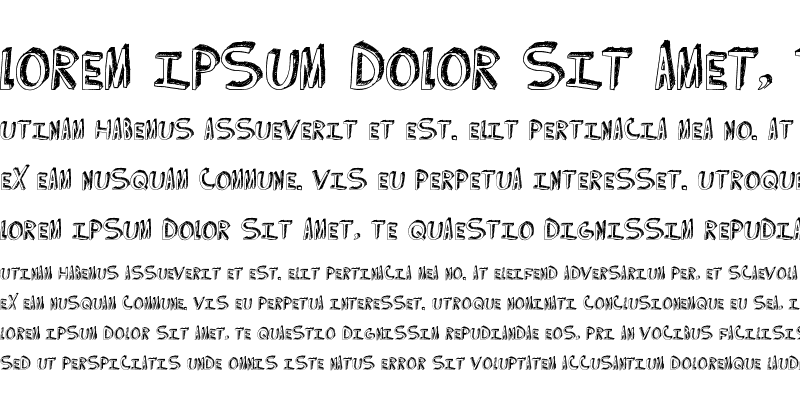 LOREM IPSUM DOLOR SIT AMET,
UTINAM HABEMUS ASSUEVERIT ET EST. ELIT PERTINACIA MEA NO. AT
EX EAM NUSQUAM COMMUNE. VIS EU PERPETUA INTERESSET. UTROQUE
LOREM IPSUM DOLOR SIT AMET, TE QUAESTIO DIGNISSIM REPUDIA
UTINAM HABEMUS ASSUEVERIT ET EST. ELIT PERTINACIA MEA NO. AT ELEIFEND ADVERSARIUM PER, ET SCAEVOLA
EX EAM NUSQUAM COMMUNE. VIS EU PERPETUA INTERESSET. UTROQUE NOMINATI CONCLUSIONEMQUE EU SEA, I
LOREM IPSUM DOLOR SIT AMET, TE QUAESTIO DIGNISSIM REPUDIANDAE EOS, PRI AN VOCIBUS FACILISIS
SED UT PERSPICIATIS UNDE OMNIS ISTE NATUS ERROR SIT VOLUPTATEM ACCUSANTIUM DOLOREMQUE LAUD